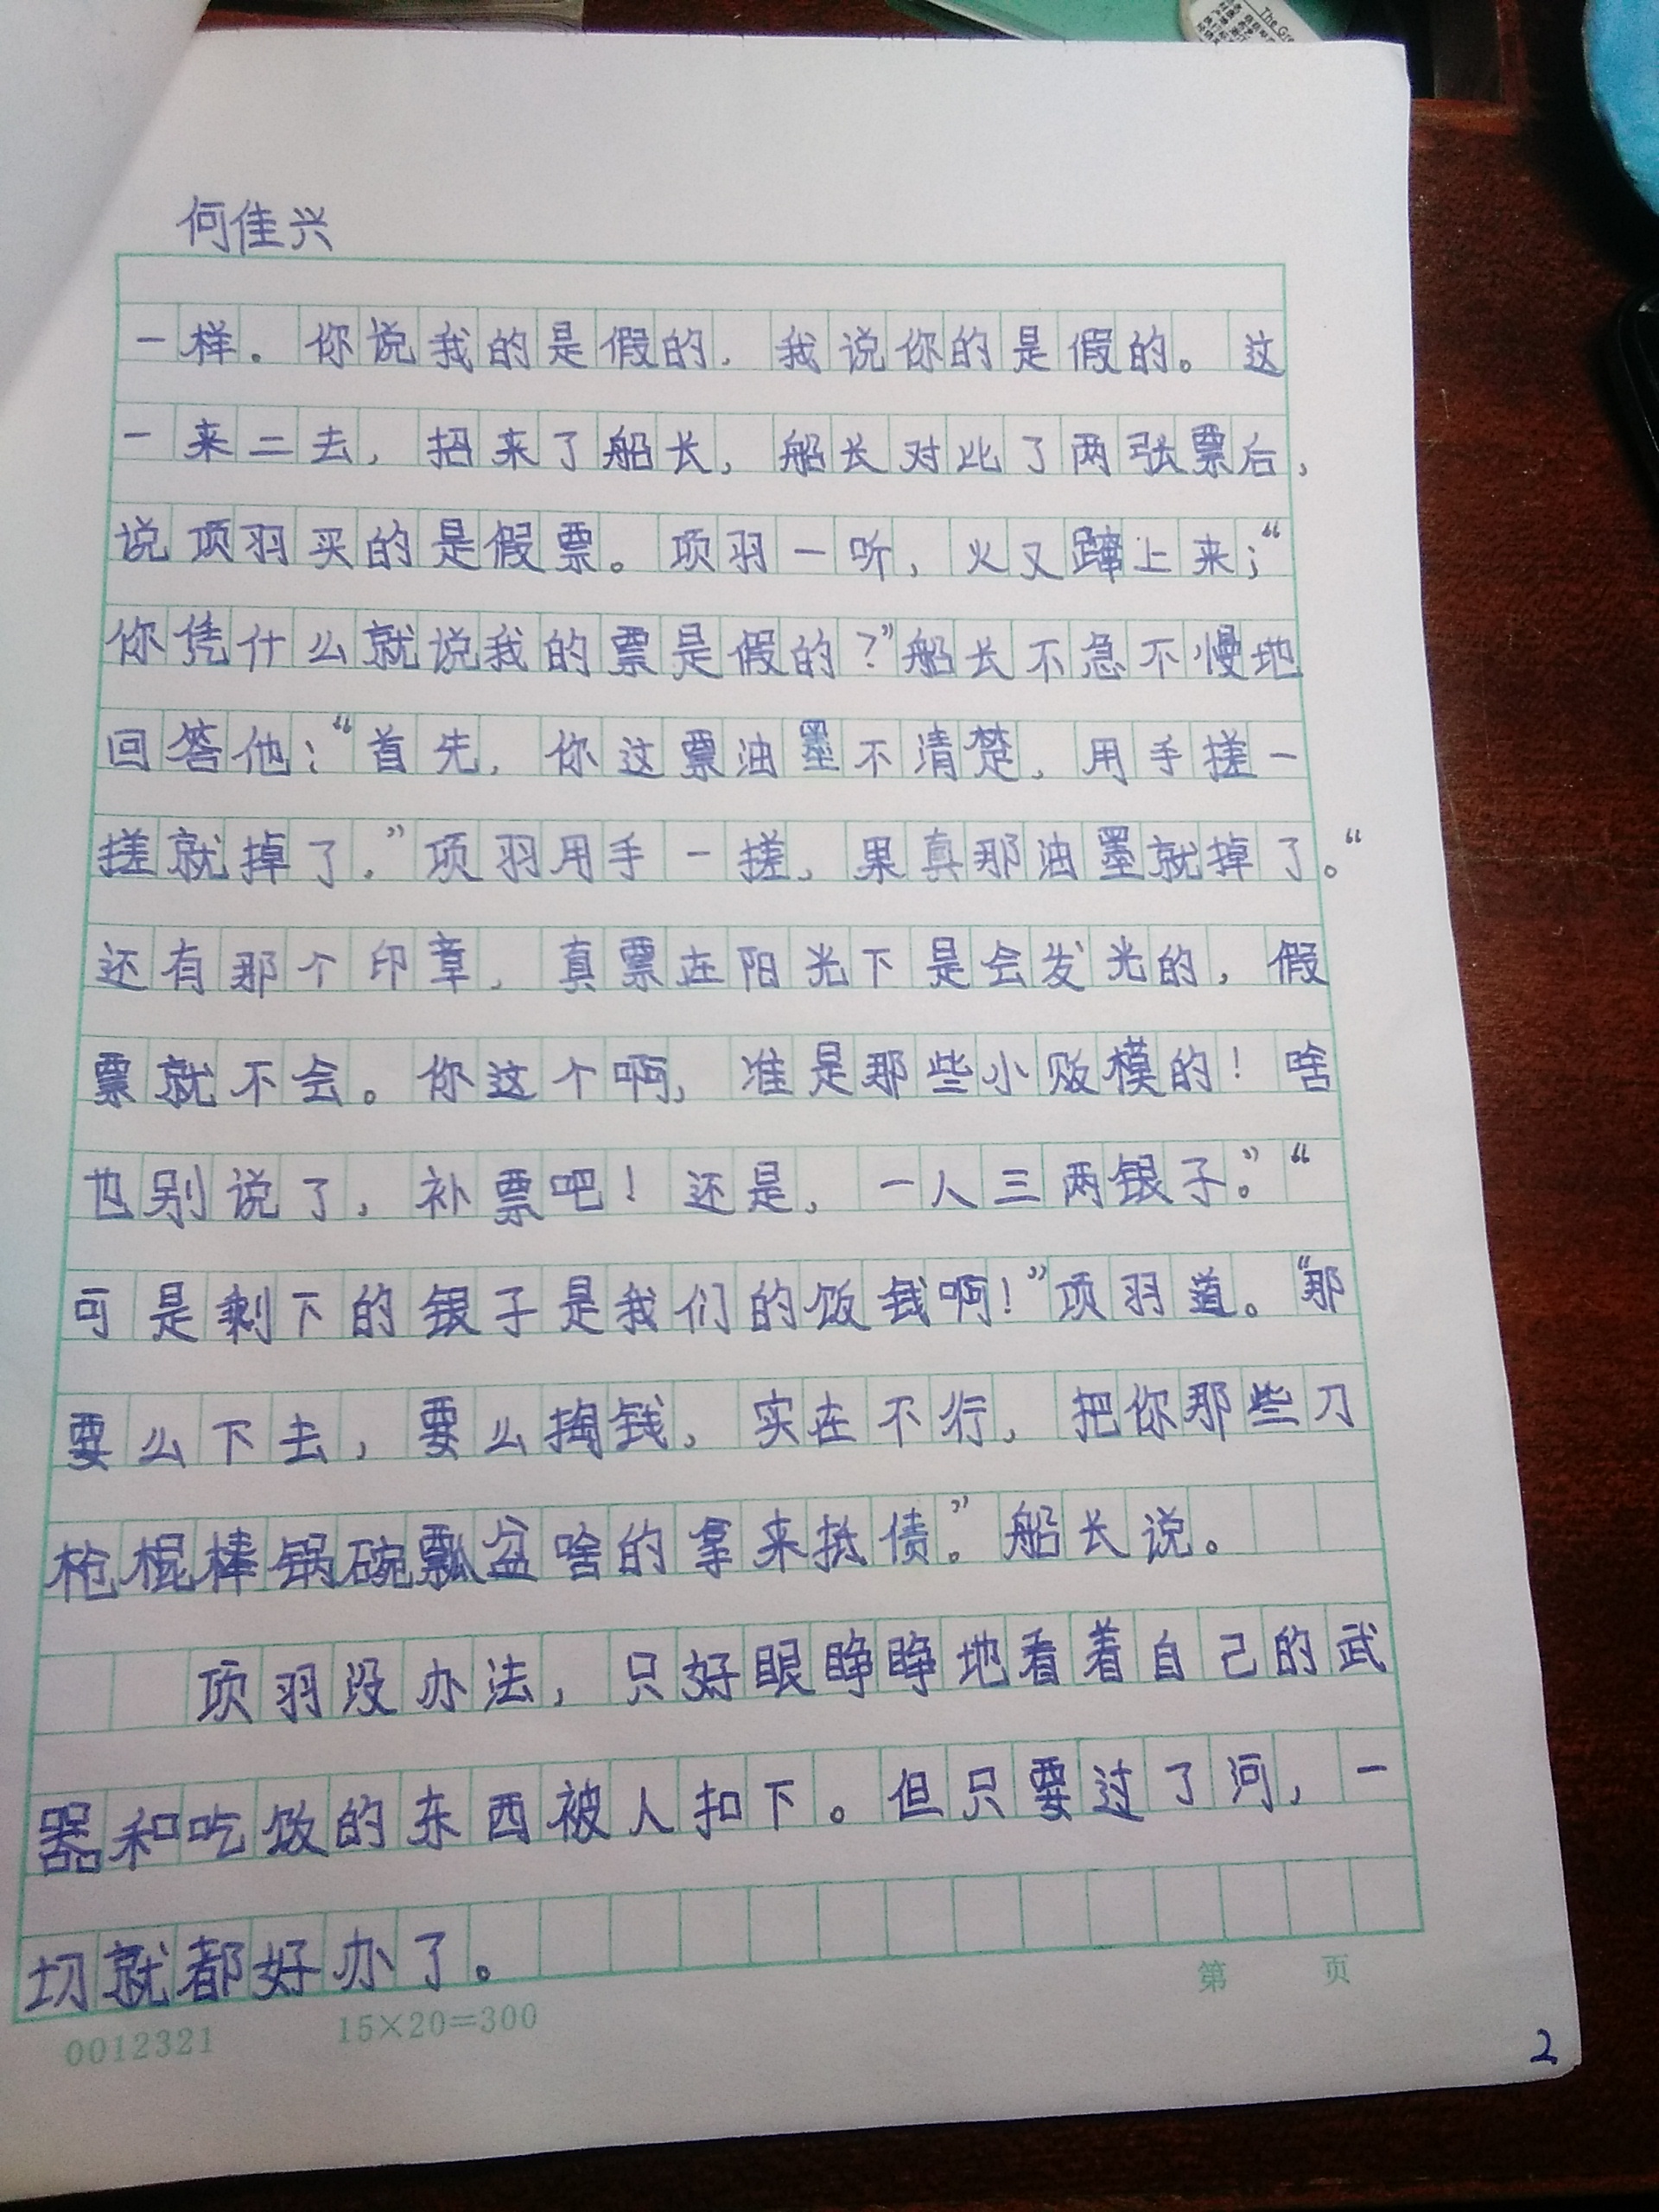 何佳兴
一样。你说我的是假的，我说你的是假的。这
一来二去，招来了船长，船长对比了两张票后，
说项羽买的是假票。项羽一听，火又蹿上来；“
你凭什么就说我的票是假的？”船长不急不慢地
回答他：“首先，你这票油墨不清楚，用手搓一
搓就掉了。”项羽用手一搓，果真那油墨就掉了。“
还有那个印章，真票在阳光下是会发光的，假
票就不会。你这个啊，准是那些小贩模的！啥
也别说了，补票吧！还是，一人三两银子。”“
可是剩下的银子是我们的饭钱啊！”项羽道。“那
要么下去，要么掏钱，实在不行，把你那些刀
枪棍棒锅碗瓢盆啥的拿来抵债。”船长说。
项羽没办法，只好眼睁睁地看着自己的武
器和吃饭的东西被人扣下。但只要过了河，一
切就都好办了。
第 页
0012321 15×20=300
2
The Gre